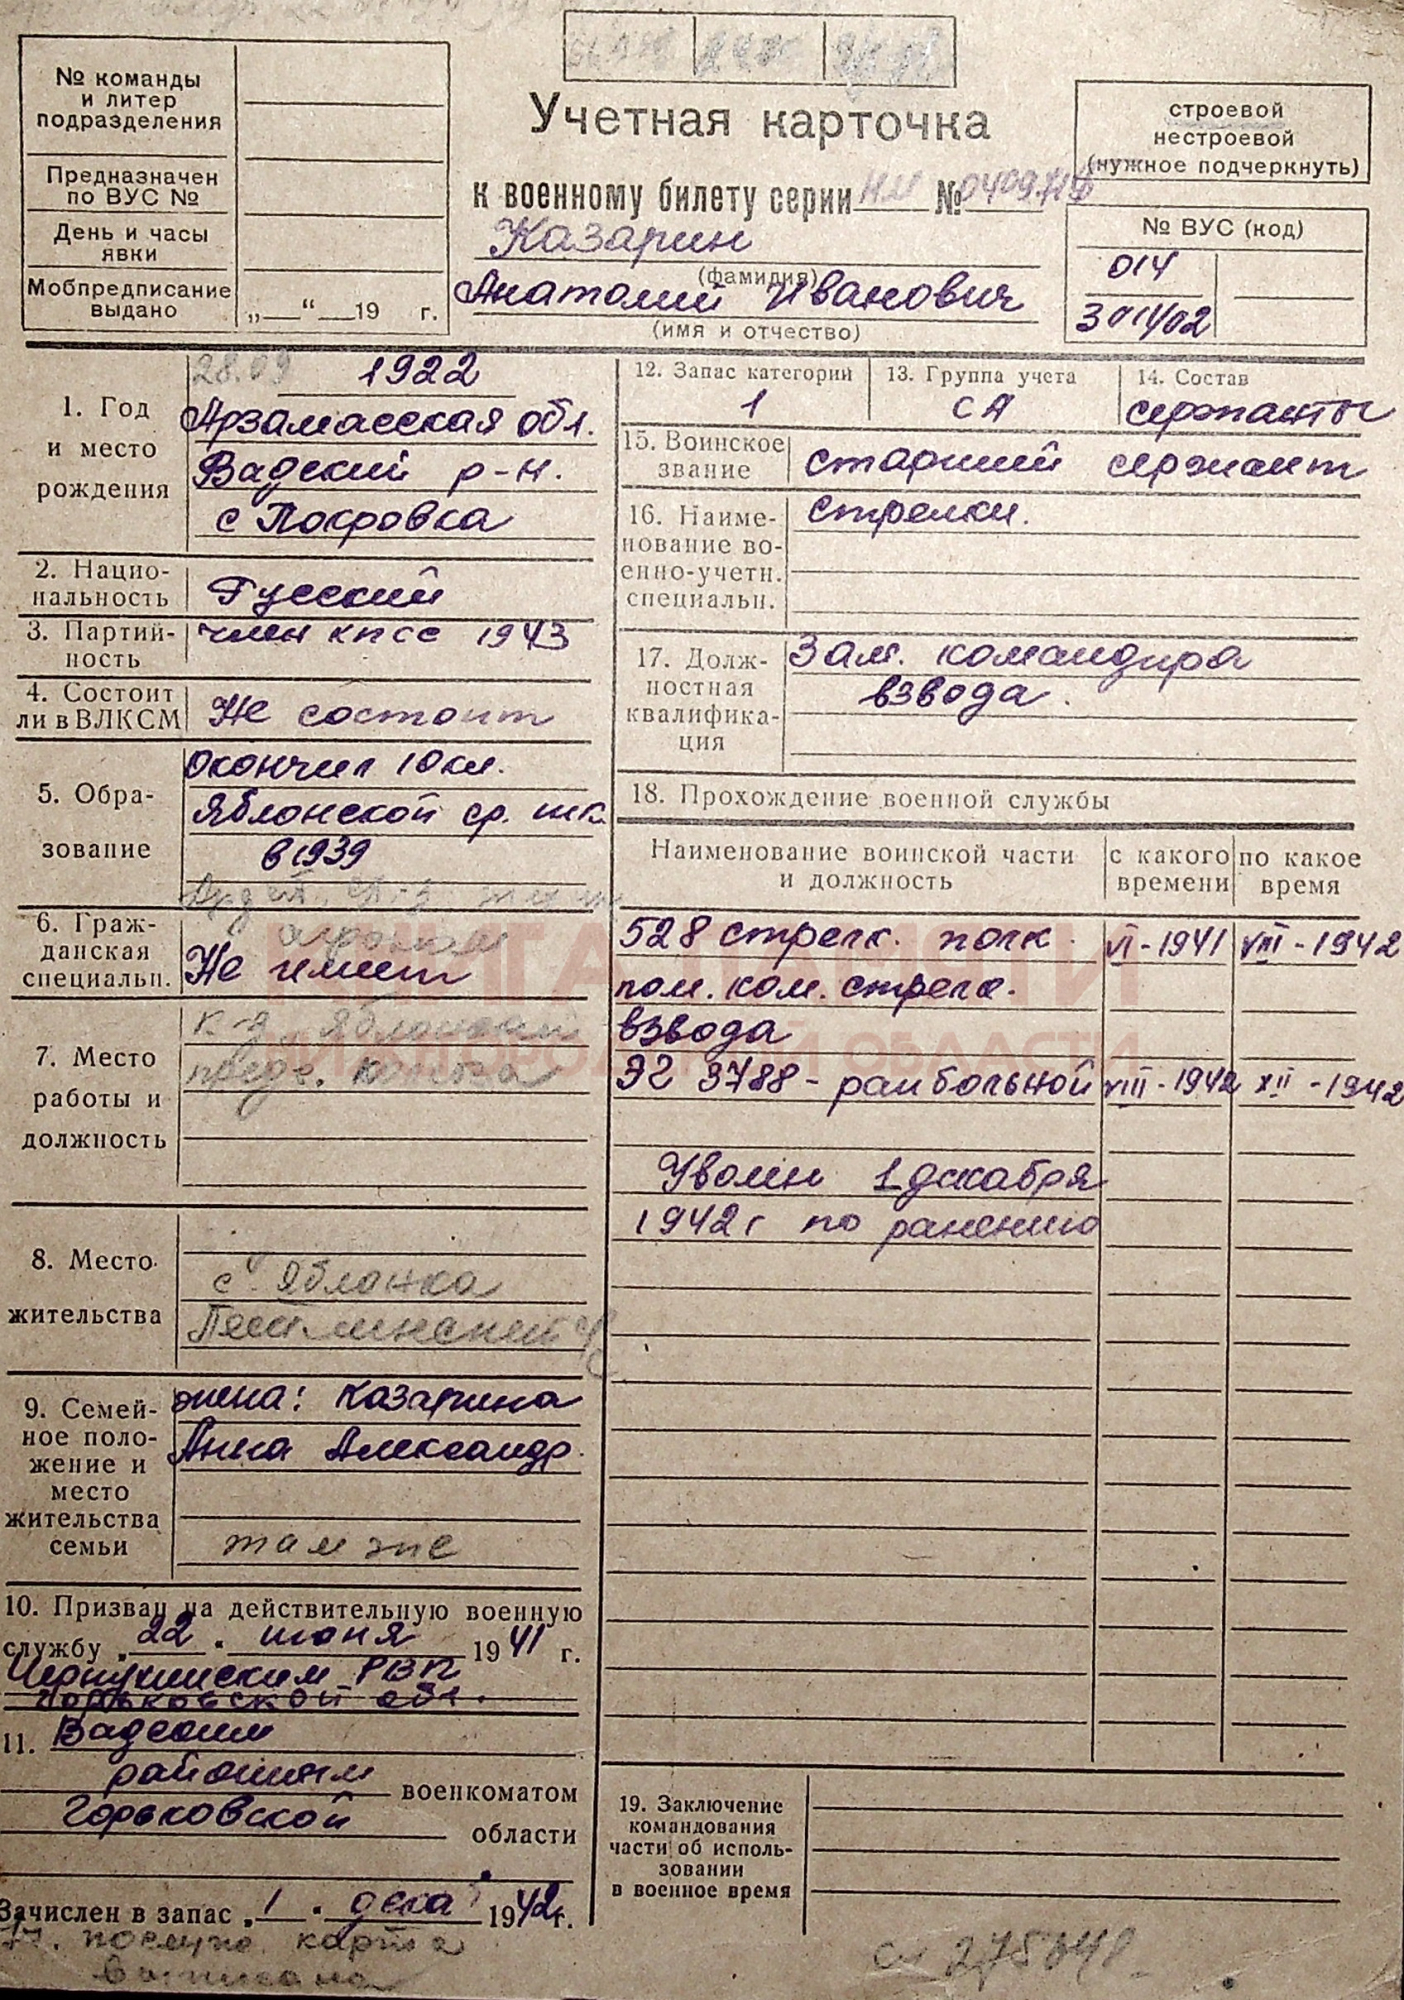 № команды
и литер
подразделения
Предназначен
по ВУС №
День и часы
явки
Мобпредписание
выдано
„__“ __19 г.
Учетная карточка
к военному билету серии НИ №
Казарин
(фамилия)
Анатолий Иванович
(имя и отчество)
строевой
нестроевой
(нужное подчеркнуть)
№ ВУС (код)
014
1. Год
и место
рождения
28.09 1922
Арзамасская обл.
Вадский р-н.
с Покровка
2. Нацио-
нальность
Русский
3. Партий-
ность
член кпсс 1943
4. Состоит
ли в ВЛКСМ
Не состоит
5. Обра-
зование
окончил 10 кл.
Яблонской ср. шк.
в 1939
6. Граж-
данская
специальн.
агроном
Не имеет
7. Место
работы и
должность
к-з Яблонский
предс. колхоза
8. Место
жительства
с. Яблонка
9. Семей-
ное поло-
жение и
место
жительства
семьи
жена: Казарина
Анна Александр.
там же
10. Призван на действительную военную
службу „22 “ июня 1941 г.
Чернухинским РВК
Горьковской обл.
11. Вадским
районным военкоматом
Горьковской области
Зачислен в запас „1 “ дека 1942 г.
карта
выписана
12. Запас категории
1
13. Группа учета
СА
14. Состав
сержанты
15. Воинское
звание
старший сержант
16. Наиме-
нование во-
енно-учетн.
специальн.
стрелки.
17. Долж-
ностная
квалифика-
ция
Зам. командира
взвода.
18. Прохождение военной службы
Наименование воинской части
и должность
с какого
времени
по какое
время
528 стрелк. полк VI-1941 VIII-1942
пом. ком. стрелк.
взвода
ЭГ 3788 - ранбольной VIII-1942 XII-1942
Уволен 1 декабря
1942 г по ранению
19. Заключение
командования
части об исполь-
зовании
в военное время
КНИГА ПАМЯТИ
НИЖЕГОРОДСКОЙ ОБЛАСТИ